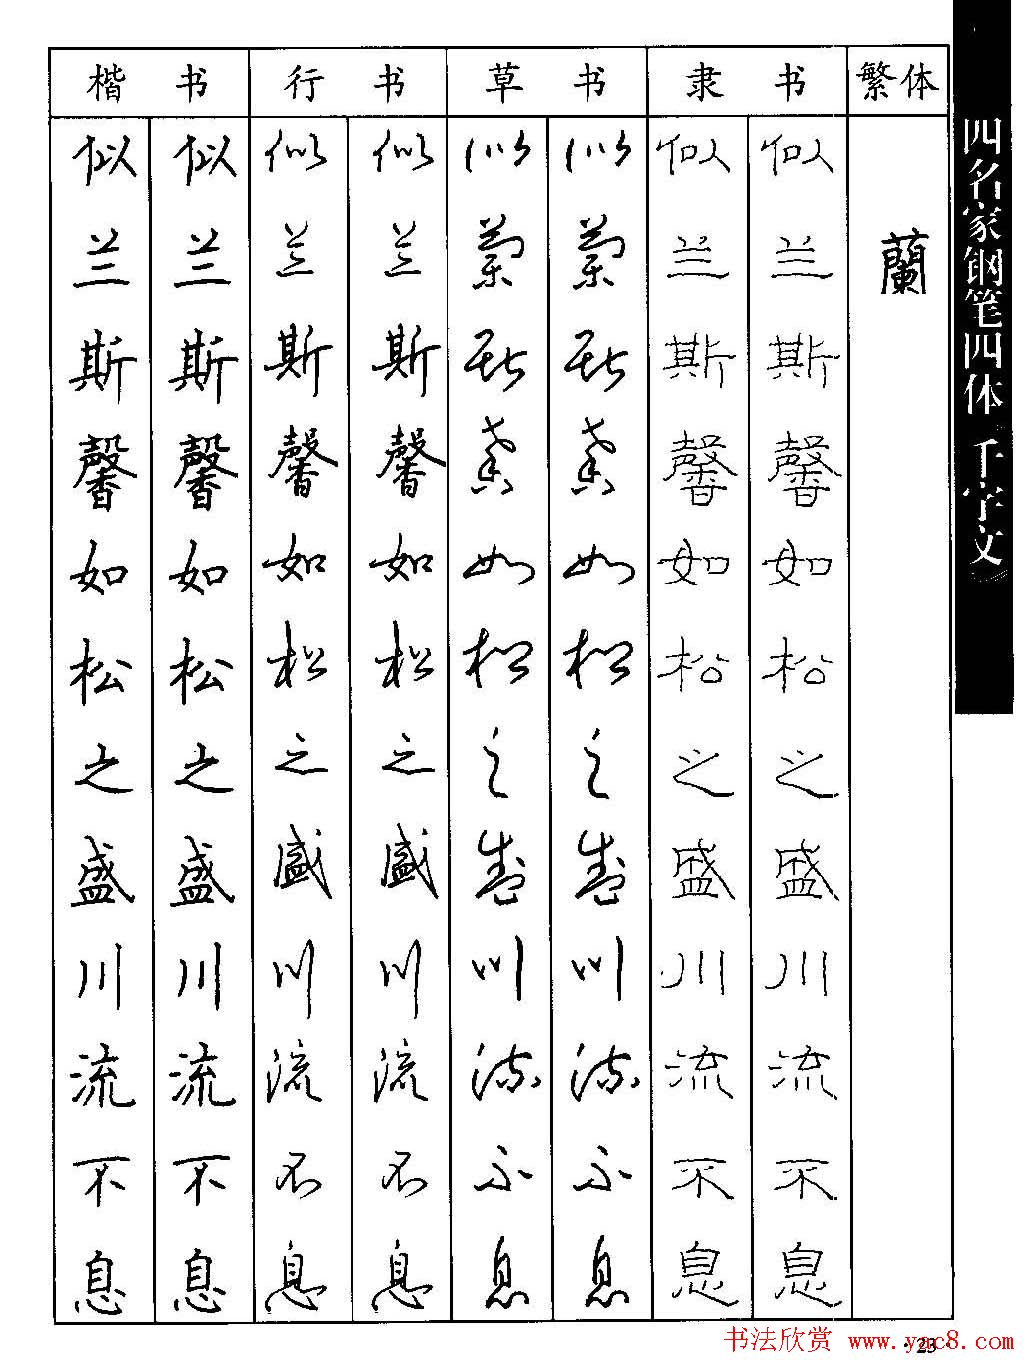 楷 书 行 书 草 书 隶 书 繁体
似 似 似 似 似 似 似 似
兰 兰 兰 兰 蘭 蘭 兰 兰 蘭
斯 斯 斯 斯 斯 斯 斯 斯
馨 馨 馨 馨 馨 馨 馨 馨
如 如 如 如 如 如 如 如
松 松 松 松 松 松 松 松
之 之 之 之 之 之 之 之
盛 盛 盛 盛 盛 盛 盛 盛
川 川 川 川 川 川 川 川
流 流 流 流 流 流 流 流
不 不 不 不 不 不 不 不
息 息 息 息 息 息 息 息
四名家钢笔四体千字文
书法欣赏 www.yac8.com
·23·